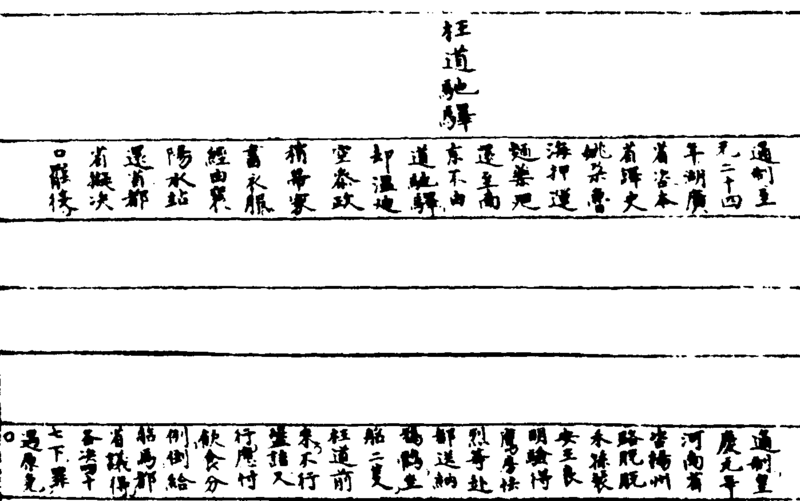 枉道馳驛
通制至
元二十四
年湖廣
省咨本
省譯史
姚朶魯
海押運
麵藥迴
還至南
京不由
道馳驛
却溫迪
空叅政
稍帶家
書衣服
經由襄
陽水站
還省都
省擬决
○罷役
通制皇
慶元年
河南省
咨揚州
路脱脱
禾孫裴
安主良
明驗得
鷹房怯
烈等赴
都送納
鵓鴿坐
船二隻
枉道前
來不行
盤詰又
行應付
飲食分
例倒給
船馬都
省議得
各决四十
七下罪
遇原免
○